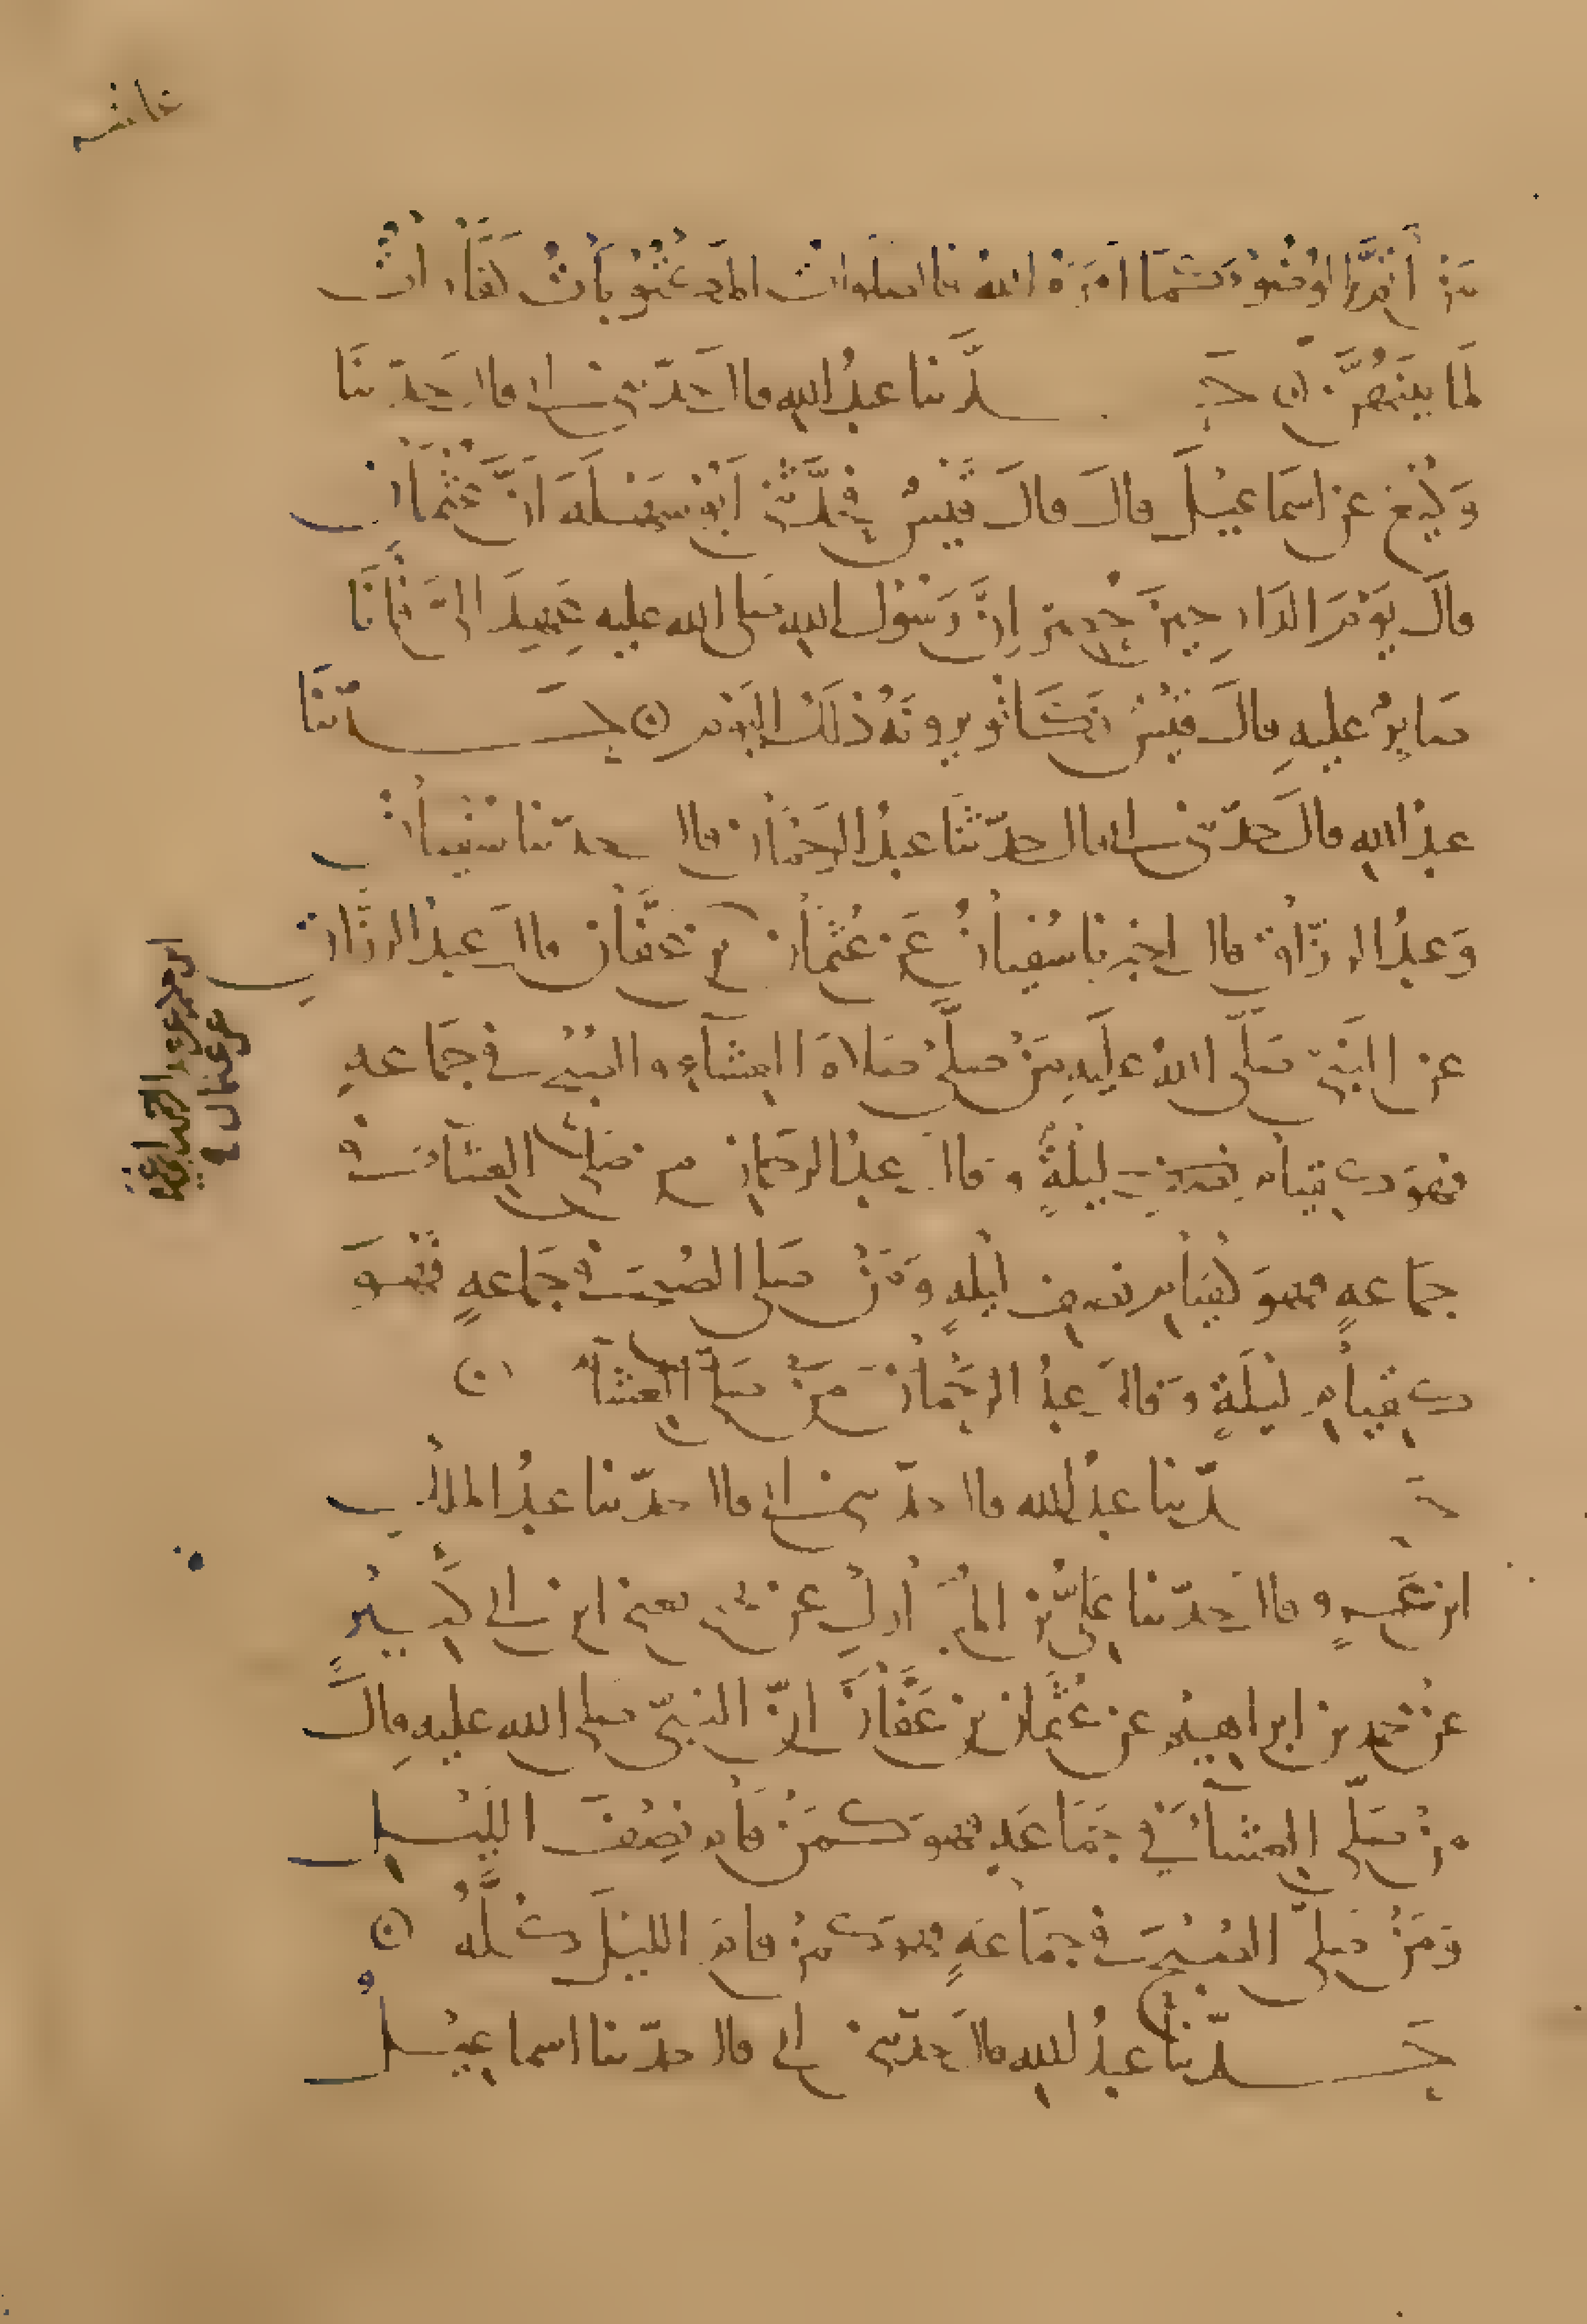 عاشر
مَنْ أَتَمَّ الوُضُوْءَ كَمَا اَمَرَهُ اللهُ فالصلوات المَكْتُوْبَاتُ كَفَّارَاتٌ
لمَا بَيْنَهُنَّ حَدَّثنا عبدُ الله قال حَدّثني ابي قال حَدّثنَا
وَكِيْع عن اسمَاعِيْلَ قالَ قالَ قَيْسٌ فَحدَّثَنِي اَبُوْ سَهْلَةَ انَّ عُثْمَانَ
قالَ يَوْمَ الدَارِ حِينَ حُصِرَ اِنَّ رَسُوْلَ الله صلى الله عليه عَهِدَ الىَّ فأنَا
صَابِرٌ عليهِ قالَ قَيْسٌ فكَانُوْ يرونَهُ ذلَكَ اليَوْمَ حَدّثنَا
عبدُ الله قالَ حَدّثني ابي قال حدّثنَا عبدُ الرَحْمَان قال حدّثنا سُفْيَانُ
وَعبدُ الرزّاق قال اخبرنا سُفيانُ عَن عُثْمَانَ بن عَفَّان قال عبدُ الرزّاق
عن النَبيّ صَلّى اللهُ عليهِ مَنْ صلَّى صَلاةَ العِشَاءِ والصُبْحِ في جمَاعهٍ
فهوَ كقيَام ليلَةٍ وقال عبدُ الرحمان من صَلى العِشَاءَ في
جمَاعهٍ فهوَ كقيَامِ نصف ليْلهٍ وَمَنْ صَلى الصُبحَ في جمَاعهٍ فَهْوَ
كقيَامِ ليْلَةٍ وَقالَ عبدُ الرحْمَانِ مَنْ صَلى العِشَاءَ
حَدّثنا عبدُ الله قال حدّثني ابي قال حدّثنا عبدُ الملكِ
ابن عَمْرٍو قال حَدّثنا عَليُّ بْن المُبَارَكِ عن يحيى يعني ابن ابي كَثِيْرٍ
عنْ محمد بن ابراهيمَ عن عُثْمَان بن عَفَّانَ انّ النبيّ صلى الله عليهِ قالَ
منْ صَلّى العِشَاءَ في جَمَاعَهٍ فهوَ كَمَنْ قَامَ نِصْفَ الليْلِ
وَمَنْ صَلّى الصُبْحَ في جمَاعَهٍ فهوَ كَمنْ قامَ الليْلَ كُلَّهُ
حَدّثنَا عبدُ الله قالَ حَدّثني ابي قال حدّثنا اسماعِيْلُ